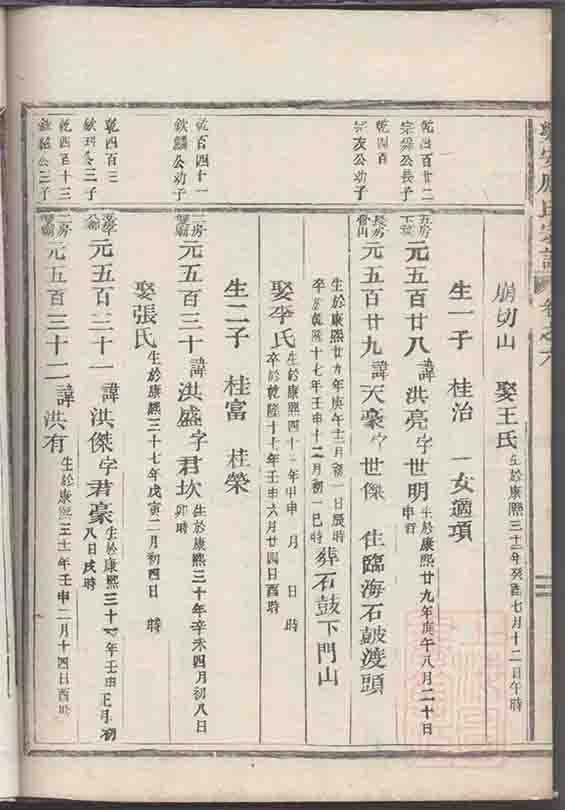 應氏宗譜 卷之六
崩切山 娶王氏 生於康熙三十二年癸酉七月十二日午時
生一子 桂治 一女適項
乾四百廿二
公長子
五房 元五百廿八 諱洪亮字世明 生於康熙廿九年庚午八月二十日
申時
乾四百
友公幼子
長房 元五百廿九 諱天豪字世傑 住臨海石鼓渡頭
生於康熙廿九年庚午十二月初一日辰時
卒於乾隆十七年壬申十二月初一巳時 葬石鼓下門山
娶李氏 生於康熙四十三年甲申 月 日 時
卒於乾隆十七年壬申六月廿四日酉時
生二子 桂富 桂榮
乾百四十一
欽麟公幼子
二房 元五百三十 諱洪盛字君坎 生於康熙三十年辛未四月初八日
卯時
娶張氏 生於康熙三十七年戊寅二月初四日 時
乾四百三
欽 公三子
元五百三十一 諱洪傑字君豪 生於康熙三十一年壬申正月初
八日戌時
乾四百十三
欽 公三子
二房 元五百三十二 諱洪有 生於康熙三十一年壬申二月十四日酉時